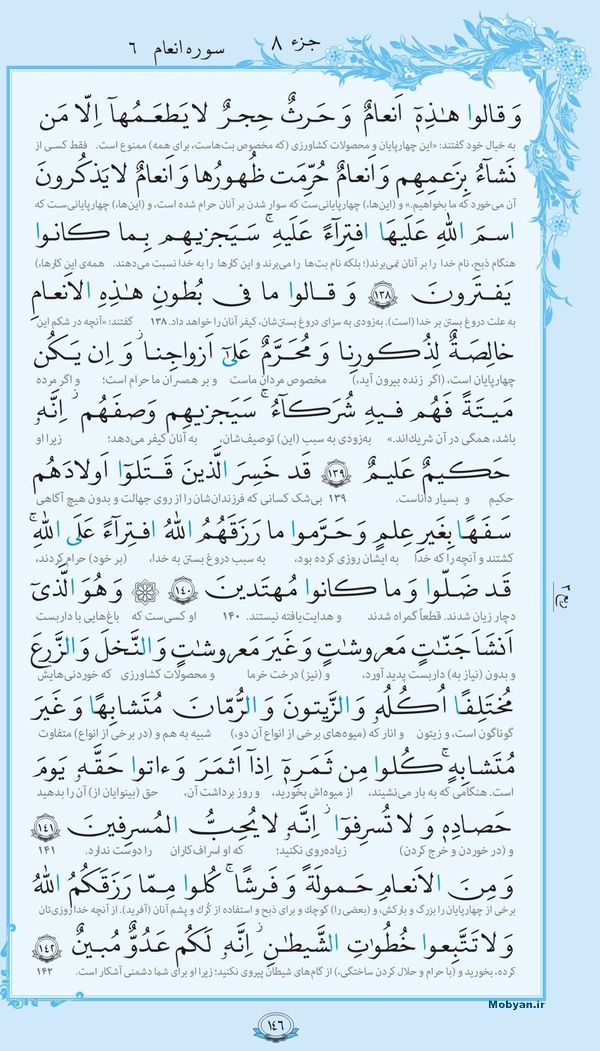 جزء ۸
سوره انعام ۶
وَ قالوا هٰذِهٖٓ اَنعامٌ وَ حَرثٌ حِجرٌ لا یَطعَمُهآ اِلّا مَن
به خیال خود گفتند: «این چهارپایان و محصولات کشاورزی (که مخصوص بت‌هاست، برای همه) ممنوع است. فقط کسی از
نَشآءُ بِزَعمِهِم وَ اَنعامٌ حُرِّمَت ظُهورُها وَ اَنعامٌ لا یَذکُرونَ
آن می‌خورد که ما بخواهیم.» و (این‌ها،) چهارپایانی‌ست که سوار شدن بر آنان حرام شده است، و (این‌ها،) چهارپایانی‌ست که
اسمَ اللهِ عَلَیهَا افتِرآءً عَلَیهِ ۚ سَیَجزیهِم بِما کانوا
هنگام ذبح، نام خدا را بر آنان نمی‌برند(؛ بلکه نام بت‌ها را می‌برند و این کارها را به خدا نسبت می‌دهند. همه‌ی این کارها،)
یَفتَرونَ ﴿۱۳۸﴾ وَ قالوا ما فی بُطونِ هٰذِهِ الاَنعامِ
به علت دروغ بستن بر خدا (است). به‌زودی به سزای دروغ بستن‌شان، کیفر آنان را خواهد داد. ۱۳۸ گفتند: «آنچه در شکم این
خالِصَةٌ لِذُکورِنا وَ مُحَرَّمٌ عَلیٰٓ اَزواجِنا ۖ وَ اِن یَکُن
چهارپایان است، (اگر زنده بیرون آید،) مخصوص مردان ماست و بر همسران ما حرام است؛ و اگر مرده
مَیتَةً فَهُم فیهِ شُرَکآءُ ۚ سَیَجزیهِم وَصفَهُم ۚ اِنَّهٗ
باشد، همگی در آن شریک‌اند.» به‌زودی به سبب (این) توصیف‌شان، به آنان کیفر می‌دهد؛ زیرا او
حَکیمٌ عَلیمٌ ﴿۱۳۹﴾ قَد خَسِرَ الَّذینَ قَتَلوٓا اَولادَهُم
حکیم و بسیار داناست. ۱۳۹ بی‌شک کسانی که فرزندان‌شان را از روی جهالت و بدون هیچ آگاهی
سَفَهًا بِغَیرِ عِلمٍ وَ حَرَّموا ما رَزَقَهُمُ اللهُ افتِرآءً عَلَی اللهِ ۚ
کشتند و آنچه را که خدا به ایشان روزی کرده بود، به سبب دروغ بستن به خدا، (بر خود) حرام کردند،
قَد ضَلّوا وَ ما کانوا مُهتَدینَ ﴿۱۴۰﴾ وَ هُوَ الَّذیٓ
دچار زیان شدند. قطعاً گمراه شدند و هدایت‌یافته نیستند. ۱۴۰ او کسی‌ست که باغ‌هایی با داربست
اَنشَاَ جَنّاتٍ مَعروشاتٍ وَ غَیرَ مَعروشاتٍ وَ النَّخلَ وَ الزَّرعَ
و بدون (نیاز به) داربست پدید آورد، و (نیز) درخت خرما و محصولات کشاورزی که خوردنی‌هایش
مُختَلِفًا اُکُلُهٗ وَ الزَّیتونَ وَ الرُّمّانَ مُتَشابِهًا وَ غَیرَ
گوناگون است، و زیتون و انار که (میوه‌های برخی از انواع آن دو،) شبیه به هم و (در برخی از انواع) متفاوت
مُتَشابِهٍ ۚ کُلوا مِن ثَمَرِهٖٓ اِذآ اَثمَرَ وَ ءاتوا حَقَّهٗ یَومَ
است. هنگامی که به بار می‌نشیند، از میوه‌اش بخورید، و روز برداشت آن، حق (بینوایان از) آن را بدهید
حَصادِهٖ وَ لا تُسرِفوٓا ۚ اِنَّهٗ لا یُحِبُّ المُسرِفینَ ﴿۱۴۱﴾
و (در خوردن و خرج کردن) زیاده‌روی نکنید؛ که او اسراف‌کاران را دوست ندارد. ۱۴۱
وَ مِنَ الاَنعامِ حَمولَةً وَ فَرشًا ۚ کُلوا مِمّا رَزَقَکُمُ اللهُ
برخی از چهارپایان را بزرگ و بارکش، و (بعضی را) کوچک و برای ذبح و استفاده از کُرک و پشم آنان (آفرید). از آنچه خدا روزی‌تان
وَ لا تَتَّبِعوا خُطُواتِ الشَّیطانِ ۚ اِنَّهٗ لَکُم عَدُوٌّ مُبینٌ ﴿۱۴۲﴾
کرده، بخورید و (با حرام و حلال کردن ساختگی،) از گام‌های شیطان پیروی نکنید؛ زیرا او برای شما دشمنی آشکار است. ۱۴۲
۱۴۶
Mobyan.ir